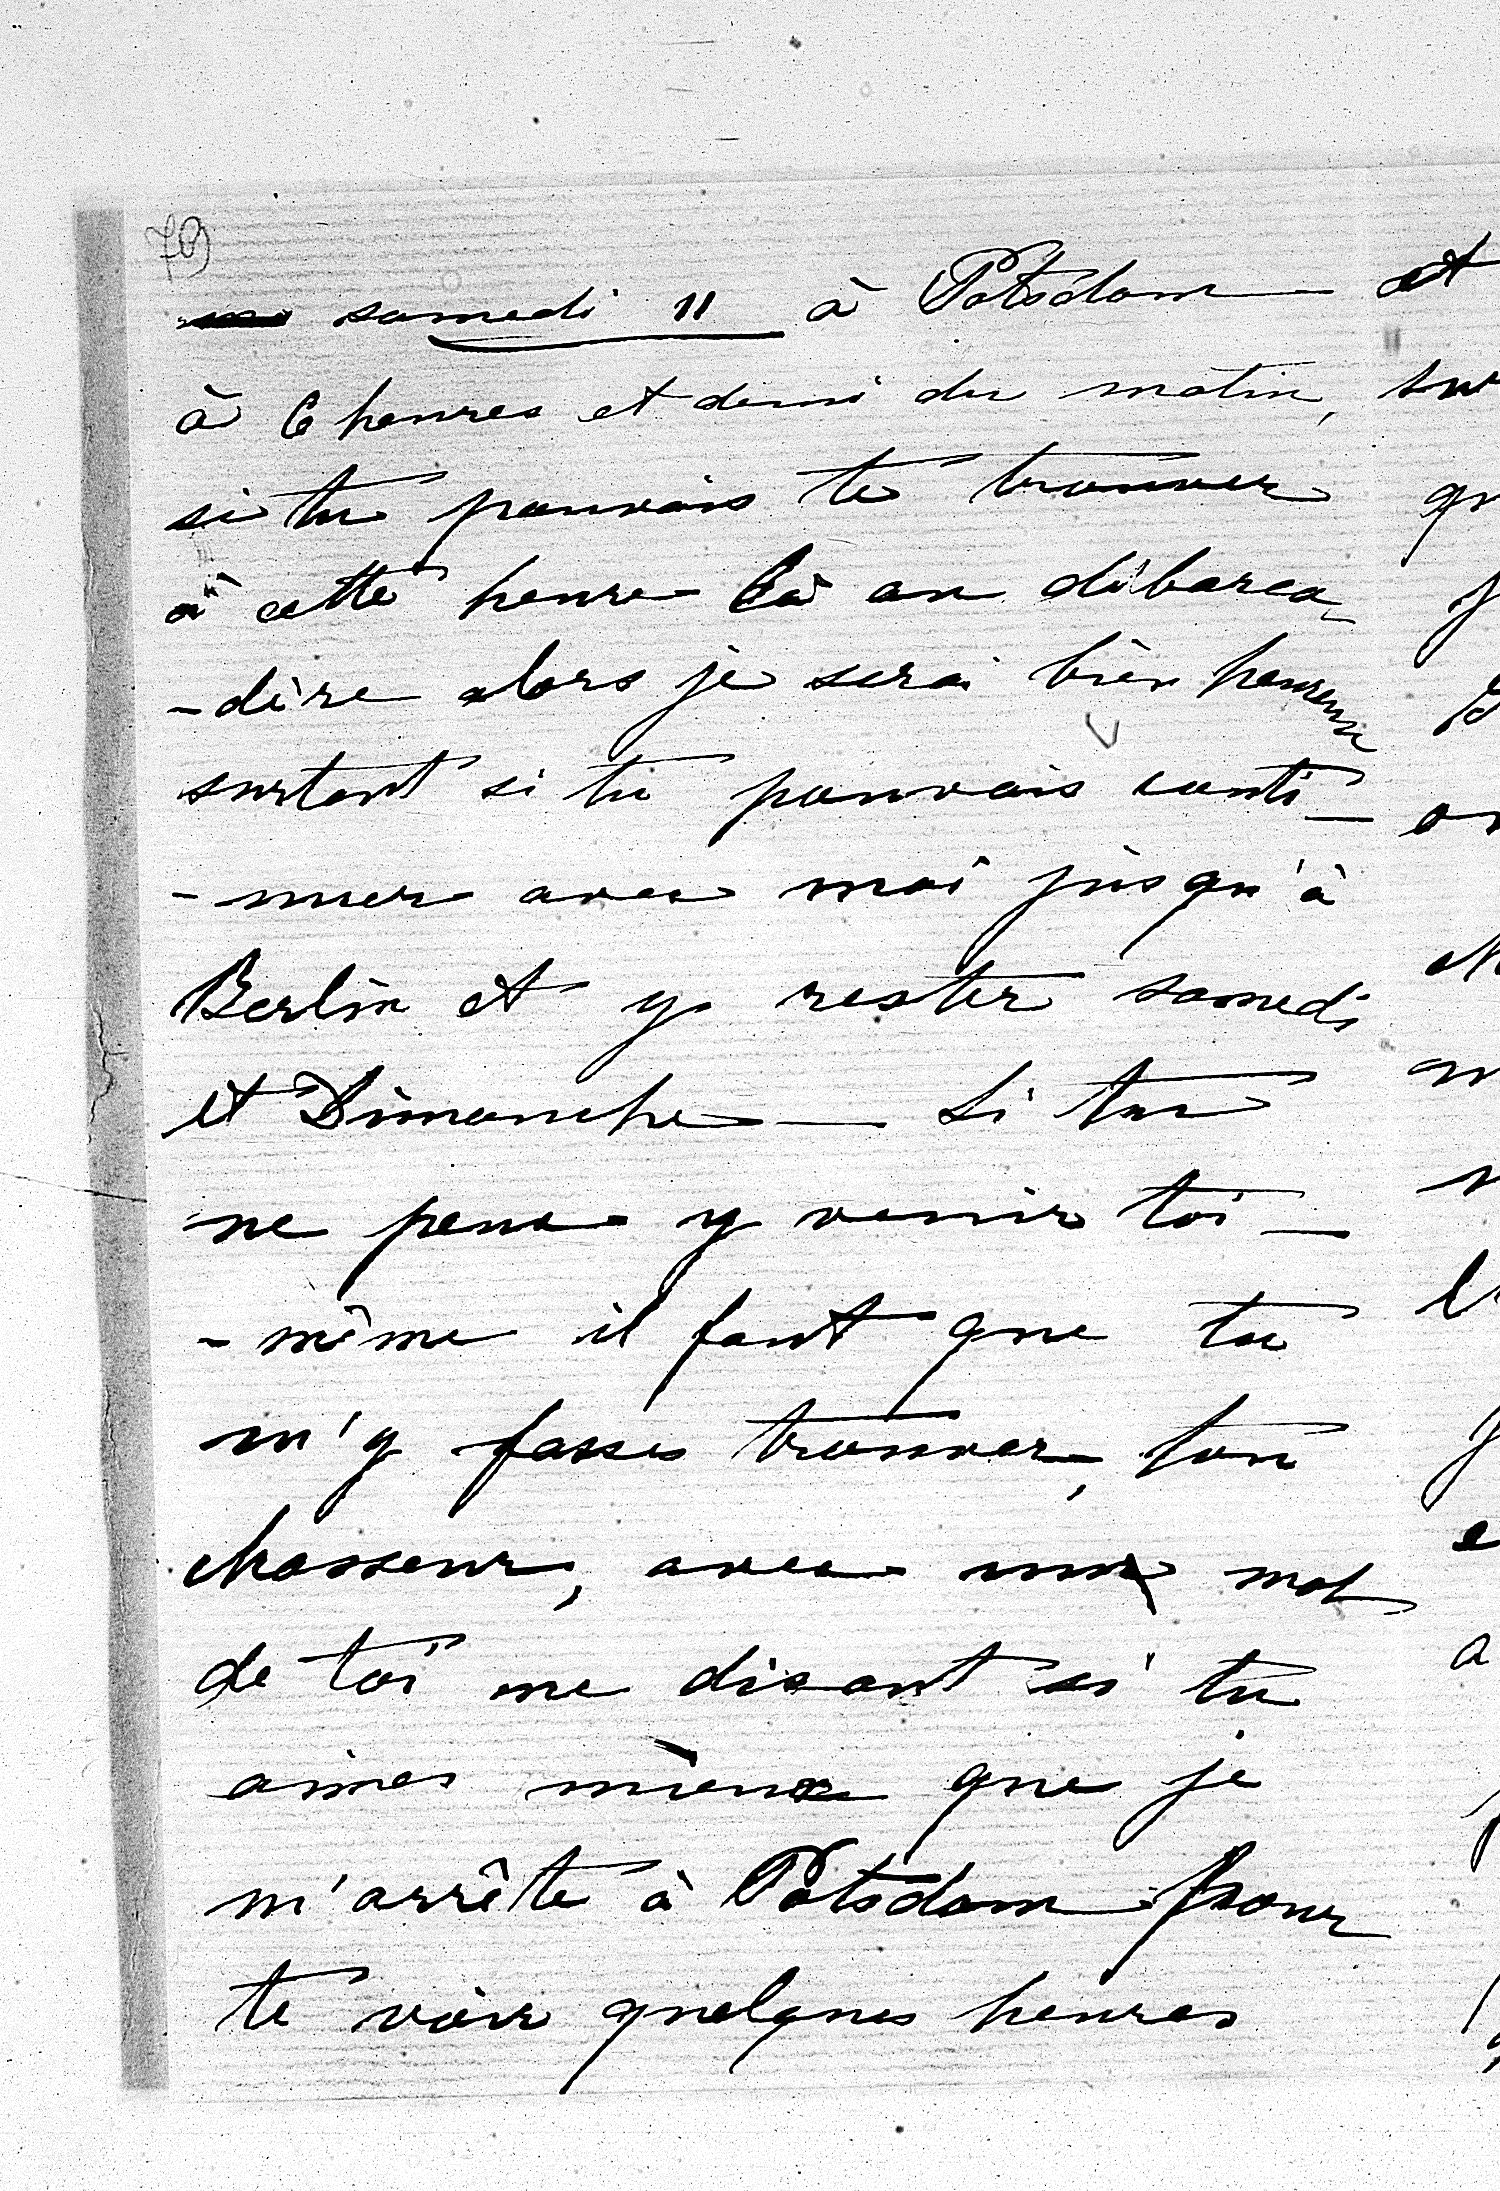 79
samedi 11 à Potsdam
à 6 heures et demi du matin,
si tu pouvais te trouver
à cette heure là au débarca
-dère alors je serai bien heureux
surtout si tu pouvais conti-
-nuer avec moi jusqu'à
Berlin et y rester samedi
et Dimanche — Si tu
ne peux y venir toi-
-même il faut que tu
m'y fasses trouver, ton
chasseur, avec un mot
de toi me disant si tu
aimes mieux que je
m'arrête à Potsdam pour
te voir quelques heures
et